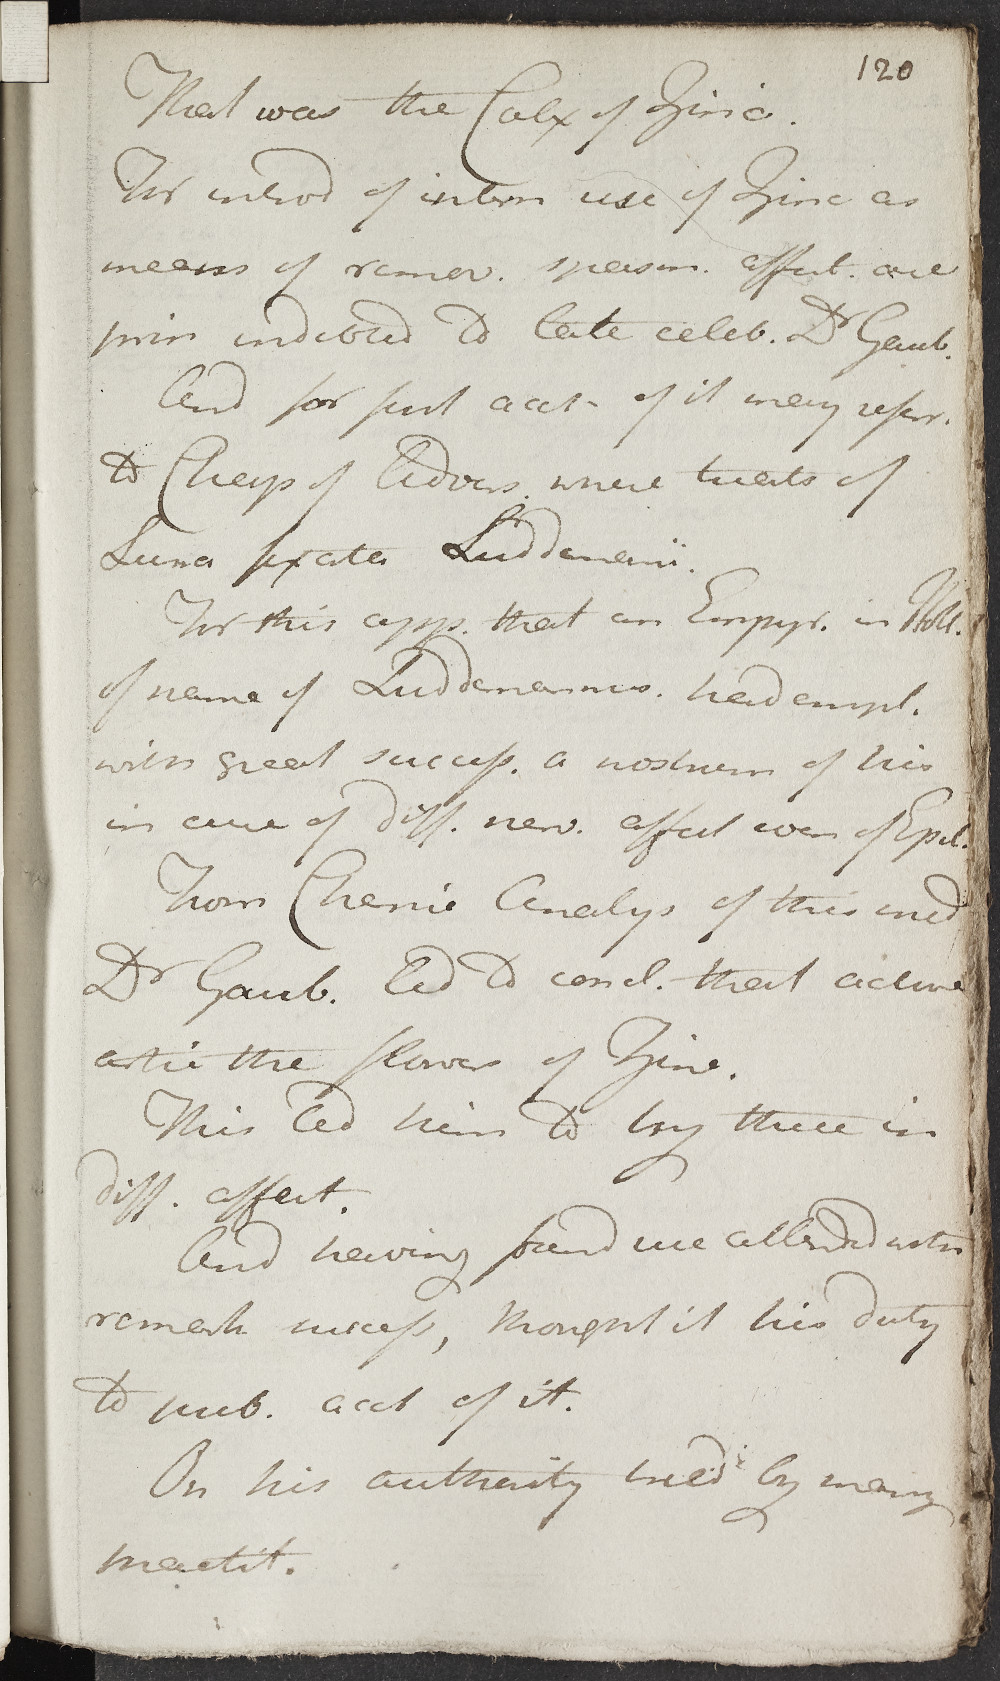 120
That was the Calx of Zinc.
For introd of intern use of Zinc as
means of remov. spasm. affect. are
prin indebted to late celeb. Dr Gaub.
And for full acct of it may refer.
to Chap of Advers. where treats of
Luna fixata Luddemanii.
Fr this app. that an Empyr. in Holl.
of name of Luddemannus. had empl.
with great success. a nostrum of his
in cure of diff. nerv. affect even of Epil.
From Chemic Analys of this med
Dr Gaub. led to concl. that active
artic the flowers of Zinc.
This led him to try these in
diff. affect.
And having found use attended with
remark success, thought it his duty
to pub. acct of it.
On his authority tried by many
practit.